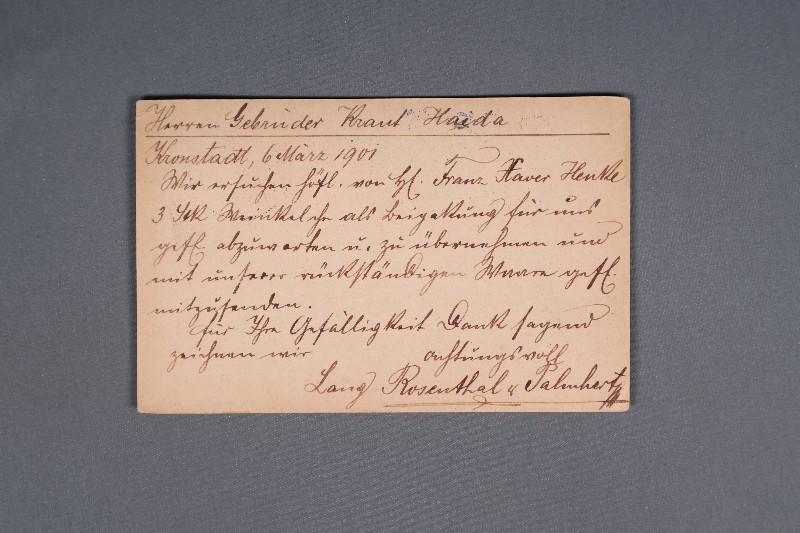 Herren Gebrüder Kraut Haida
Kronstadt, 6 März 1901
Wir ersuchen höfl. von H. Franz Xaver Henke
3 Stk Weinkelche als Beipakung für uns
gefl. abzuwarten u. zu übernehmen und
mit unserer rückständigen Waare gefl.
mitzusenden.
für Ihre Gefälligkeit Dank sagend
zeichnen wir achtungsvoll
Lang Rosenthal & Palmhert